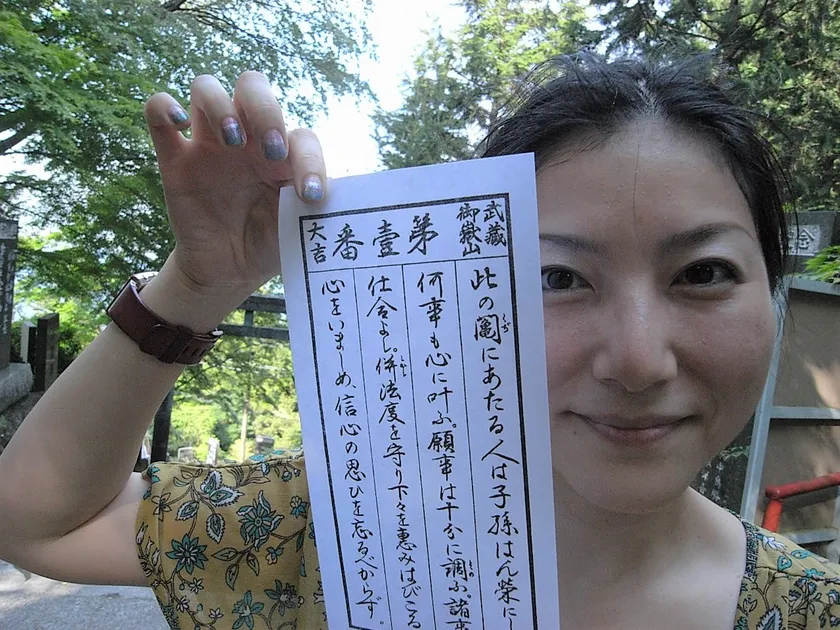 武蔵
御嶽山
第壹番
大吉
此の鬮にあたる人は子孫はん榮にし
何事も心に叶ふ。願事は十分に調ふ諸事
仕合よし。併法度を守り下々を惠みはびこる
心をいましめ、信心の思ひを忘るべからず。